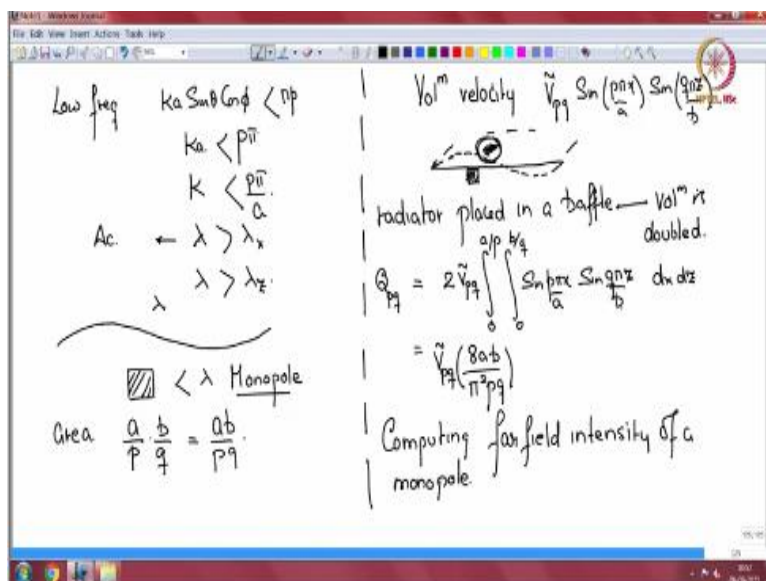 Note1 - Windows Journal
File Edit View Insert Actions Tools Help
Low freq ka Sinθ Cosϕ < πp
ka < pπ
k < pπ/a
Ac. ← λ > λx
λ > λz.
λ
< λ Monopole
Area a/p · b/q = ab/pq.
Vol^m velocity Ṽpq Sin(pπx/a) Sin(qπz/b)
radiator placed in a baffle — Vol^m is
doubled.
Qpq = 2Ṽpq ∫0^a/p ∫0^b/q Sin pπx/a Sin qπz/b dx dz
= Ṽpq (8ab/π²pq)
Computing far field intensity of a
monopole.